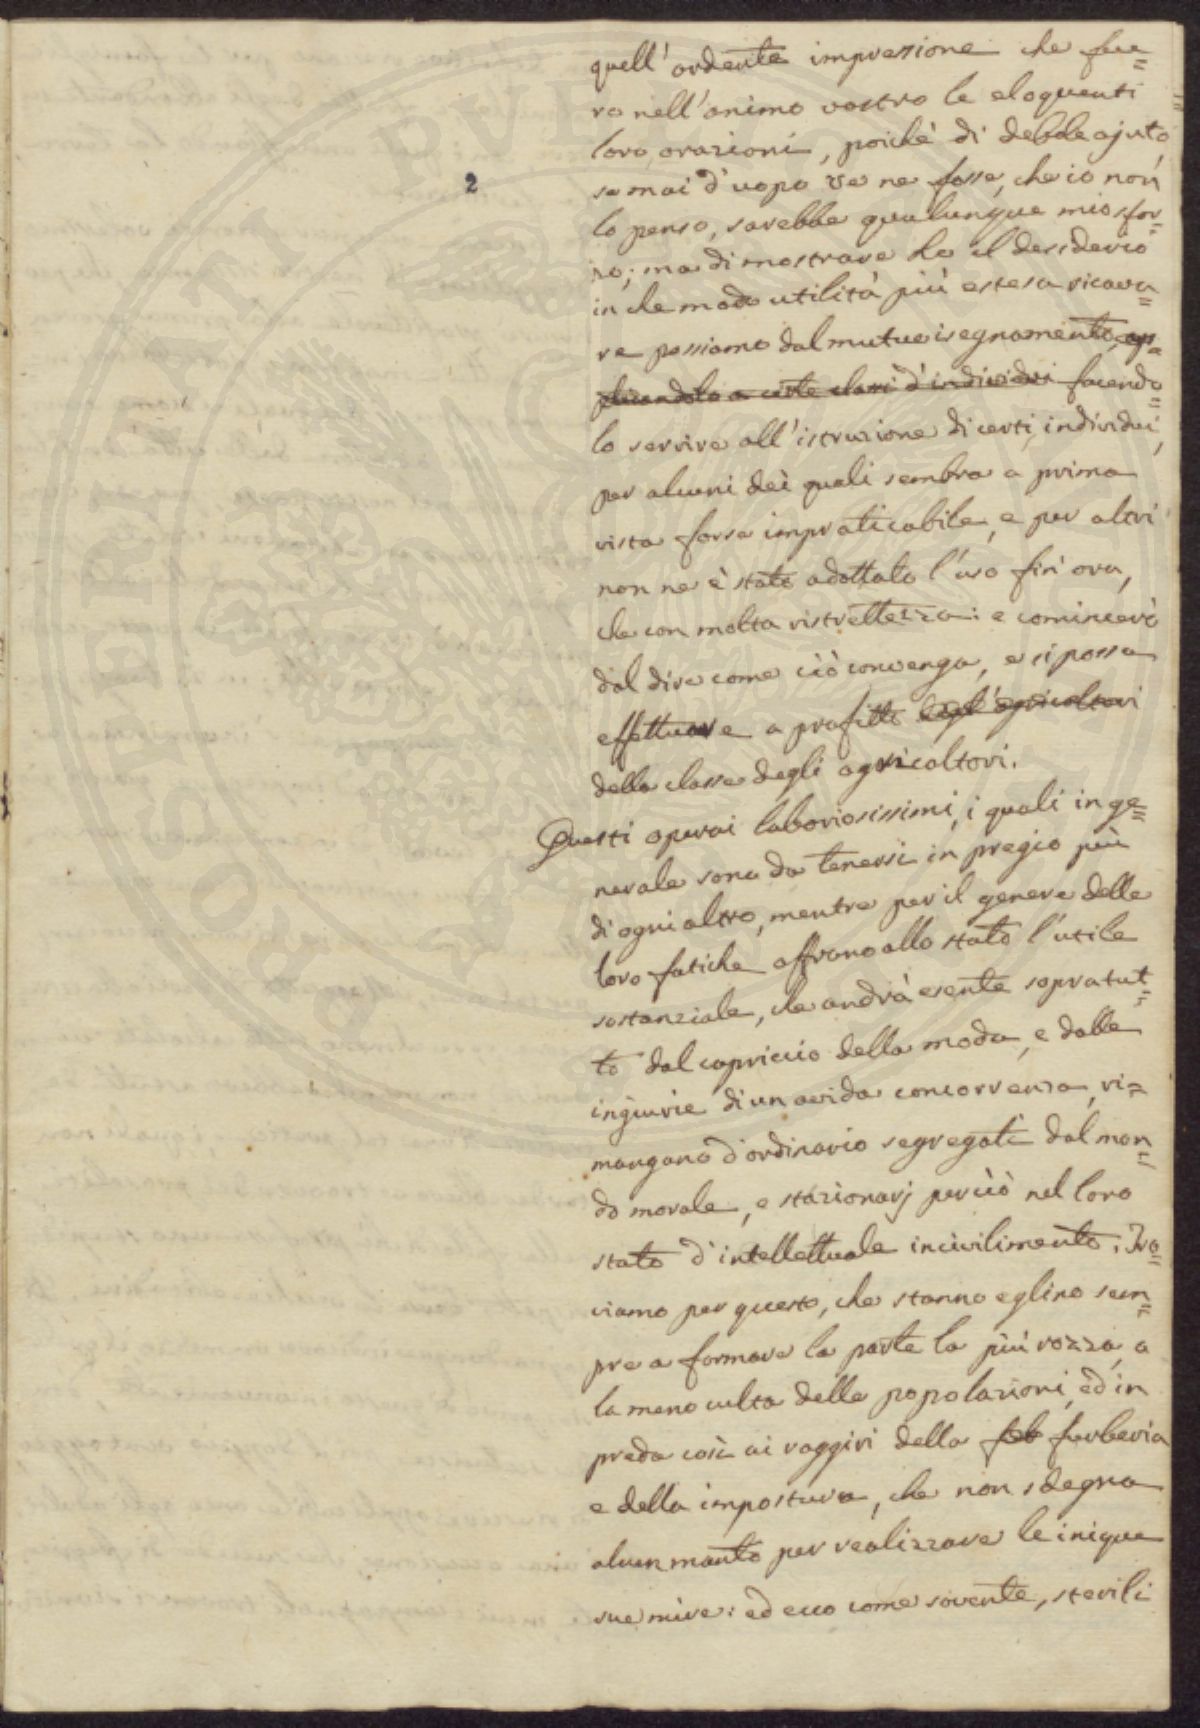 quell'ardente impressione che fece=
ro nell'animo vostro le eloquenti
loro orazioni, poichè di debole ajuto
se mai d'uopo ve ne fosse, che io non
lo penso, sarebbe qualunque mio sfor=
zo; ma di mostrare ho il desiderio
in che modo utilità più estesa ricava=
re possiamo dal mutuo isegnamento, ap=
plicandolo a certe classi d'individui facendo=
lo servire all'istruzione di certi individui,
per alcuni dei quali sembra a prima
vista forse impraticabile, e per altri
non ne è stato adottato l'uso fin'ora,
che con molta ristrettezza: e comincerò
dal dire come ciò convenga, e si possa
effettuare a profitto degl'agricoltori
della classe degli agricoltori.
Questi operai laboriosissimi, i quali in ge=
nerale sono da tenersi in pregio più
di ogni altro, mentre per il genere delle
loro fatiche offrono allo stato l'utile
sostanziale, che andrà esente sopratut=
to dal capriccio della moda, e dalle
ingiurie di un avida concorrenza, ri=
mangano d'ordinario segregati dal mon=
do morale, e stazionarj perciò nel loro
stato d'intellettuale incivilimento. Tro=
viamo per questo, che stanno eglino sem=
pre a formare la parte la più rozza, e
la meno culta delle popolazioni, ed in
preda così ai raggiri della fub furberia
e della impostura, che non sdegna
alcun manto per realizzare le inique
sue mire: ed ecco come sovente, sterili
2
POSTERITATI PVBLICAE